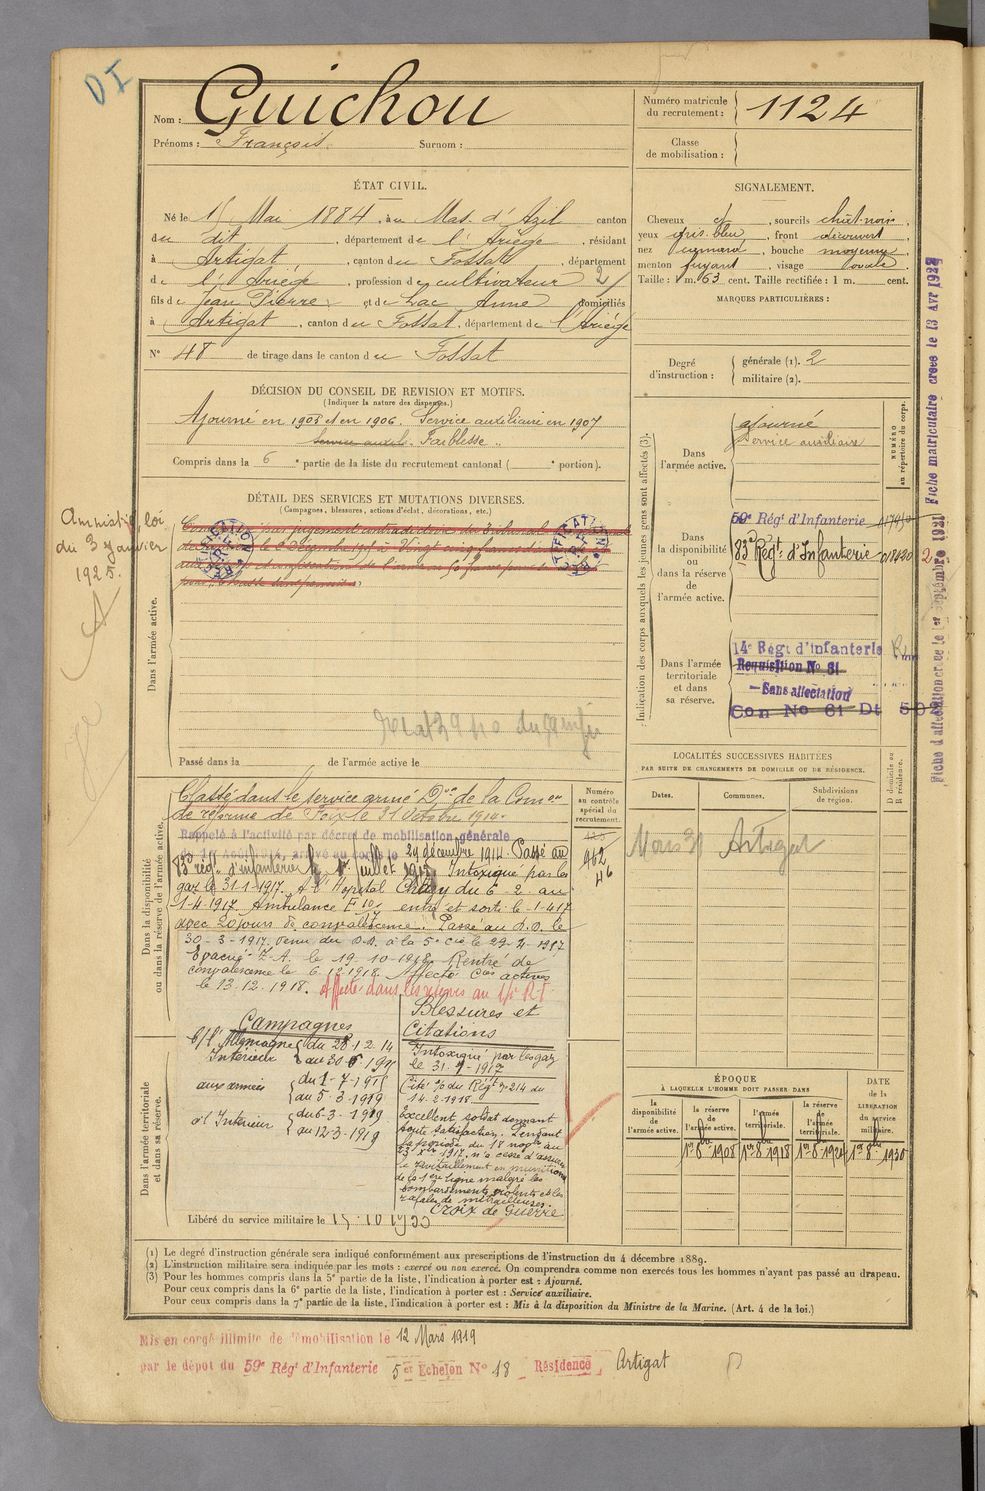 DI
Nom : Guichou
Prénoms : François. Surnom :
Numéro matricule du recrutement : 1124
Classe de mobilisation :
ÉTAT CIVIL.
Né le 15 Mai 1884, au Mas d'Azil canton
du dit, département de l'Ariège, résidant
à Artigat, canton du Fossat, département
de l'Ariège, profession de cultivateur 2/
fils de Jean Pierre et de Lac Anne domiciliés
à Artigat, canton du Fossat, département de l'Ariège
N° 48 de tirage dans le canton du Fossat
SIGNALEMENT.
Cheveux et, sourcils chât-noirs,
yeux gris-bleu, front découvert,
nez, bouche moyenne,
menton fuyant, visage ovale.
Taille : 1 m. 63 cent. Taille rectifiée : 1 m. cent.
MARQUES PARTICULIÈRES :
Degré d'instruction : générale (1). 2
militaire (2).
DÉCISION DU CONSEIL DE REVISION ET MOTIFS.
(Indiquer la nature des dispenses.)
Ajourné en 1905 et en 1906. Service auxiliaire en 1907
Service auxil. Faiblesse.
Compris dans la 6e partie de la liste du recrutement cantonal ( e portion).
DÉTAIL DES SERVICES ET MUTATIONS DIVERSES.
(Campagnes, blessures, actions d'éclat, décorations, etc.)
Amnistié, loi
du 3 janvier
1925.
RECTIFICATION R.F.
RECTIFICATION R.F.
Dans l'armée active.
Passé dans la de l'armée active le
Indication des corps auxquels les jeunes gens sont affectés (3).
NUMÉRO au répertoire du corps.
Dans l'armée active.
ajourné
Service auxiliaire
Dans la disponibilité ou dans la réserve de l'armée active.
59e Régt d'Infanterie
83e Régt d'Infanterie
Dans l'armée territoriale et dans sa réserve.
14e Régt d'Infanterie
Requisition No 61
Sans affectation
Con No 61 Dt
Fiche matriculaire créée le 13 Avr 1927
Fiche d'affectation créée le 1er Septembre 1921
Dans la disponibilité ou dans la réserve de l'armée active.
Classé dans le service armé Don de la Comon
de réforme de Foix le 31 Octobre 1914.
Rappelé à l'activité par décret de mobilisation générale
du 1er Août 1914, arrivé au corps le 29 décembre 1914. Passé au
83e rég. d'infanterie le 1er juillet. Intoxiqué par les
gaz le 31-1-1917. À l'hopital du 6-2 au
1-4-1917. Ambulance entré et sorti le 1-4-17
avec 20 jours de convalescence. Passé au D.D. le
30-3-1917. Venu du D.D. à la 5e Cie le
Evacué Z.A. le 19-10-1918. Rentré de
convalescence le 6.12.1918. Affecté Cies actives
le 13.12.1918. Affecté dans les réserves au 14e R.I.
Numéro au contrôle spécial du recrutement.
962
46
Campagnes
C/ l'Allemagne
Intérieur du 28-12-14
au 30-6-1915
aux armées du 1-7-1915
au 5-3-1919
à l'Intérieur du 6-3-1919
au 12-3-1919
Blessures et
Citations
Intoxiqué par les gaz
le 31-1-1917
Cité O/ du Régt n° 214 du
14-2-1918.
Excellent soldat donnant
toute satisfaction. Pendant
la période du 18 nov. au
1917, n'a cessé d'assurer
le ravitaillement en munitions
de la 1ère ligne malgré les
bombardements violents et les
rafales de mitrailleuses.
Croix de Guerre
Dans l'armée territoriale et dans sa réserve.
Libéré du service militaire le 15-10-1933
LOCALITÉS SUCCESSIVES HABITÉES
PAR SUITE DE CHANGEMENTS DE DOMICILE OU DE RÉSIDENCE.
Dates. Communes. Subdivisions de région. D domicile ou R résidence.
Mars 31 Artigat
ÉPOQUE
À LAQUELLE L'HOMME DOIT PASSER DANS
la disponibilité de l'armée active.
la réserve de l'armée active.
l'armée territoriale.
la réserve de l'armée territoriale.
DATE de la LIBÉRATION du service militaire.
1er 8bre 1908 1er 8bre 1918 1er 8bre 1924 1er 8bre 1930
(1) Le degré d'instruction générale sera indiqué conformément aux prescriptions de l'instruction du 4 décembre 1889.
(2) L'instruction militaire sera indiquée par les mots : exercé ou non exercé. On comprendra comme non exercés tous les hommes n'ayant pas passé au drapeau.
(3) Pour les hommes compris dans la 5e partie de la liste, l'indication à porter est : Ajourné.
Pour ceux compris dans la 6e partie de la liste, l'indication à porter est : Service auxiliaire.
Pour ceux compris dans la 7e partie de la liste, l'indication à porter est : Mis à la disposition du Ministre de la Marine. (Art. 4 de la loi.)
Mis en congé illimité de démobilisation le 12 Mars 1919
par le dépôt du 59e Régt d'Infanterie 5e Echelon No 18 Résidence Artigat